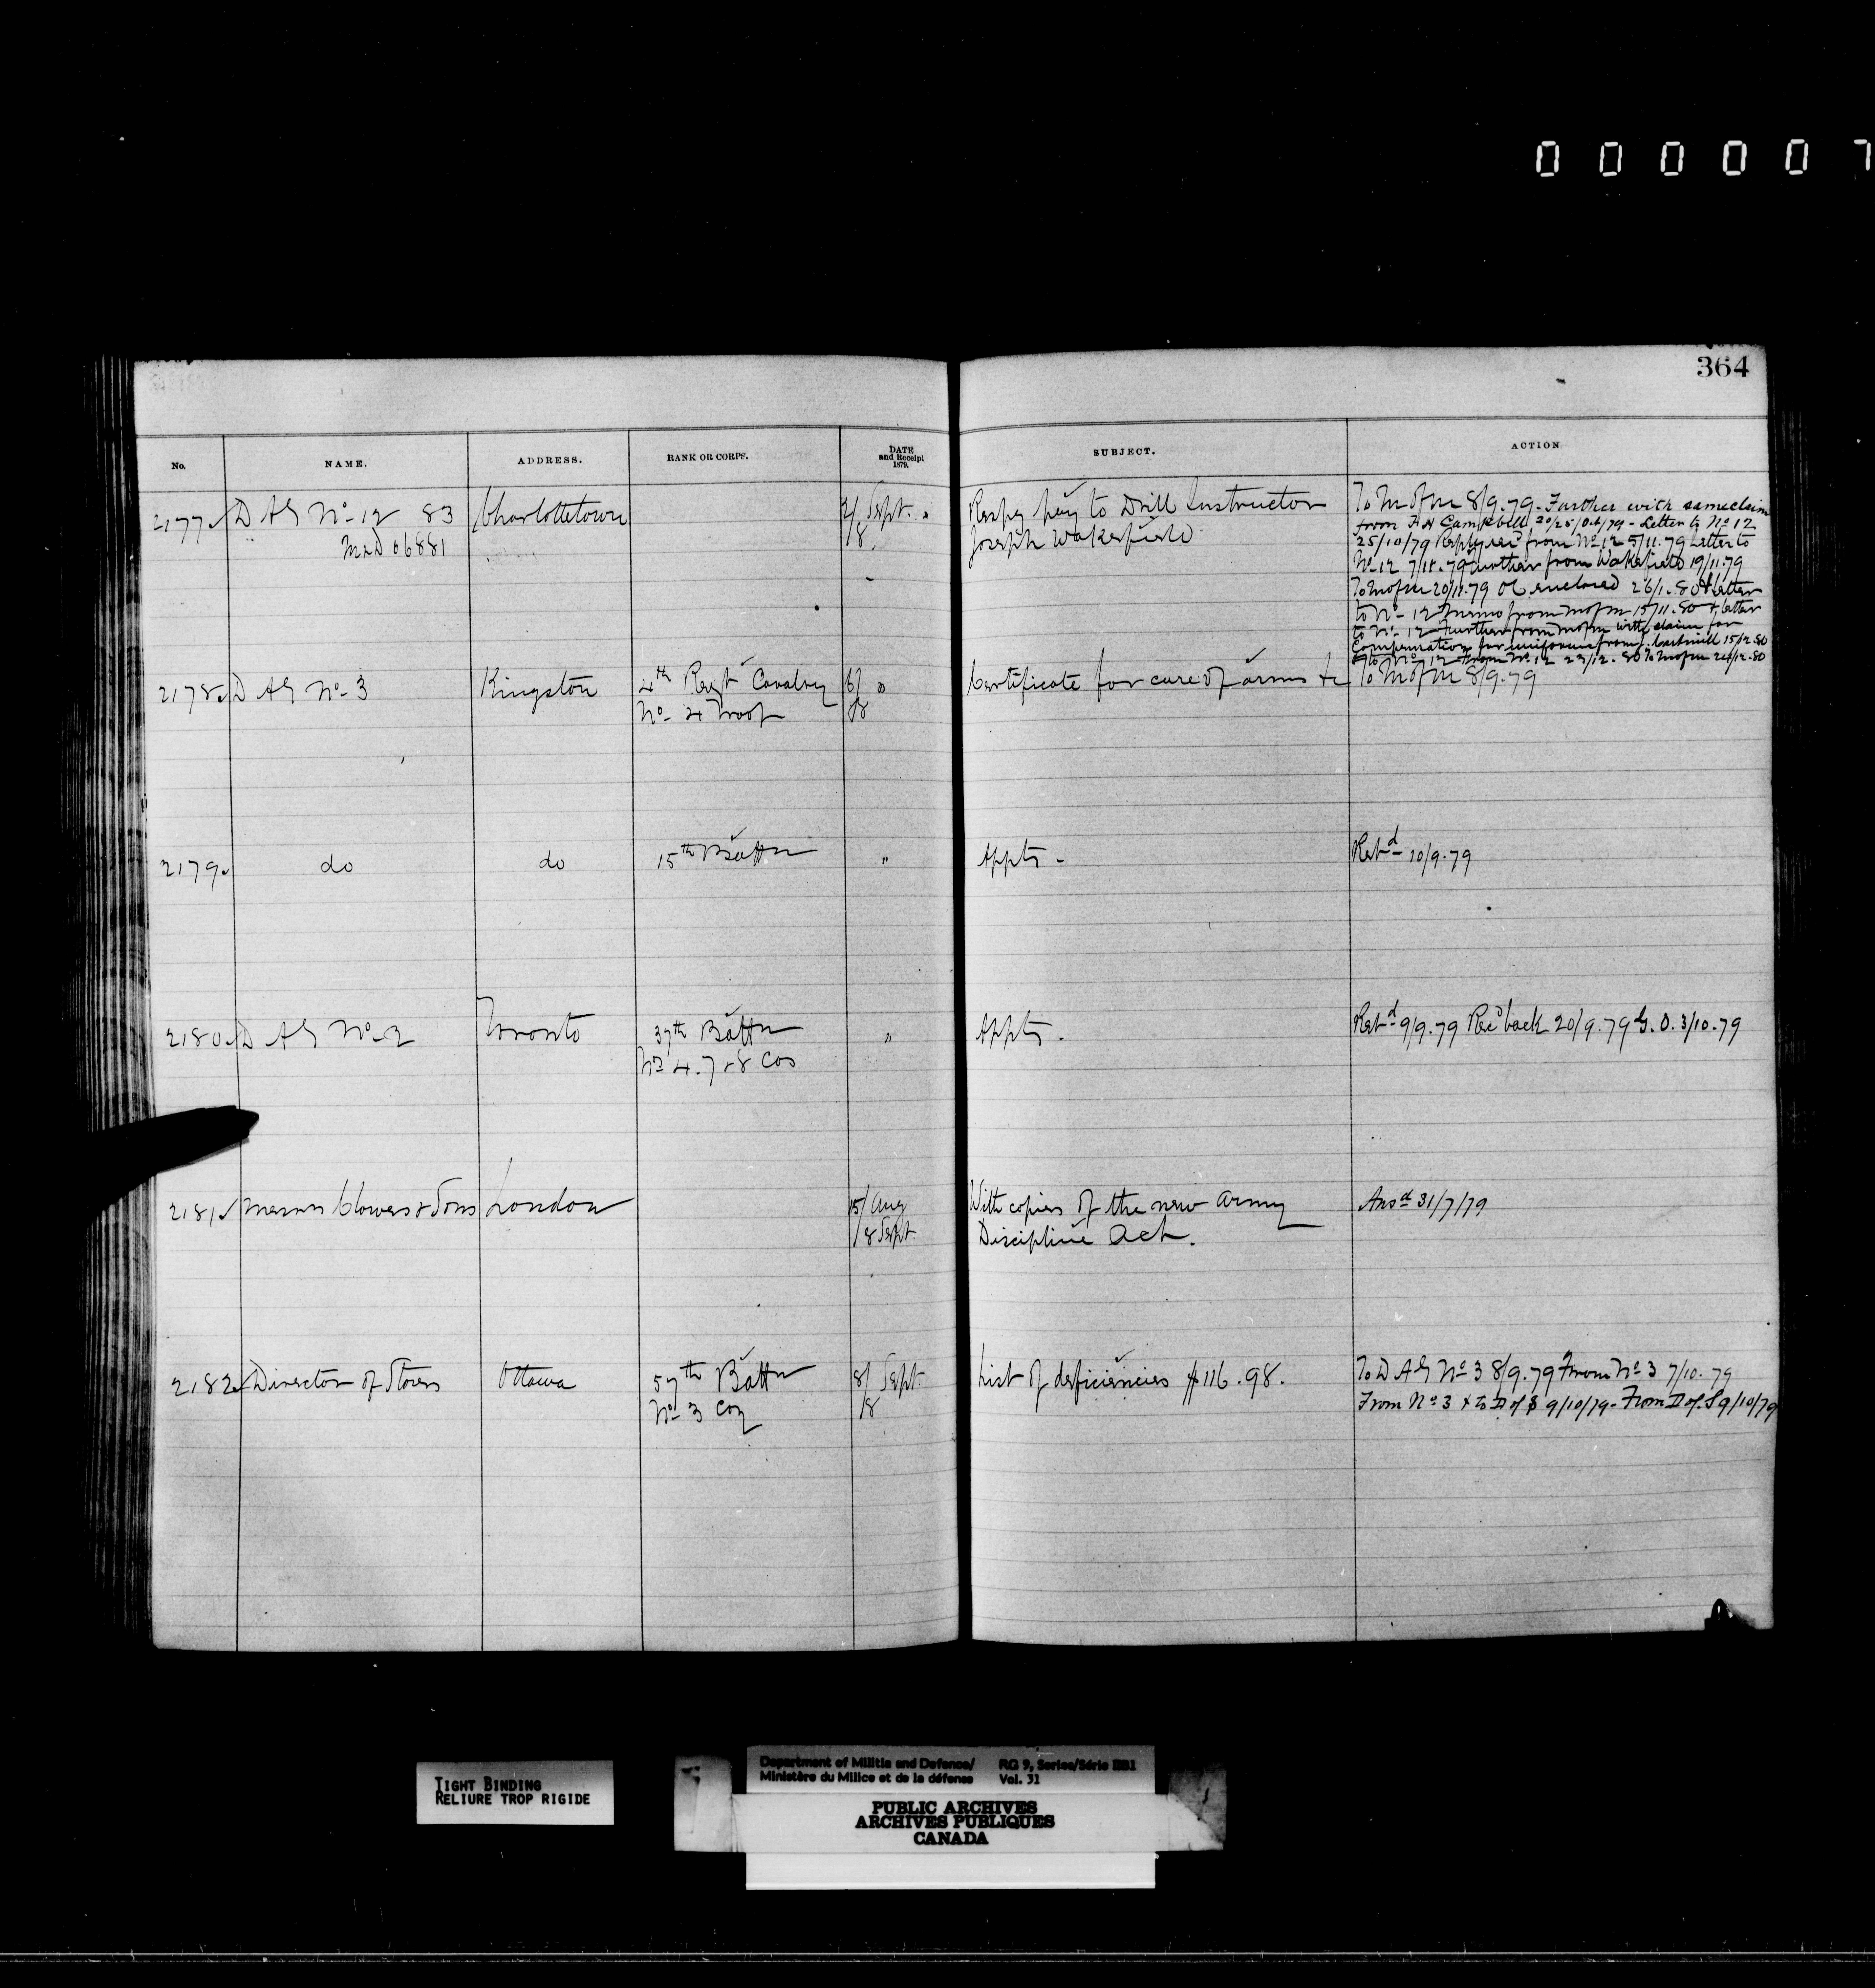 0 0 0 0 0 7
364
No. NAME. ADDRESS. RANK OR CORPS. DATE and Receipt 1879. SUBJECT. ACTION
2177 D A G No 12 83 Charlottetown 2/ Sept. Respg pay to Drill Instructor To M of M 8/9.79 - Further with same claim
M & D 06881 /8. Joseph Wakefield from F H Campbell 20/25/Oct/79 - Letter to No 12
25/10/79 Reply rec'd from No 12 5/11.79 Letter to
No 12 7/11.79 Further from Wakefield 19/11.79
To M of M 20/11.79 enclosed 26/1.80 & letter
to No 12 Memo from M of M 15/11.80 & letter
to No 12 Further from M of M with claim for
Compensation for uniforms from 15/12.80
to No 12 From No 12 23/12.80 To M of M 24/12.80
2178 D A G No 3 Kingston 4th Regt Cavalry 6/ " Certificate for care of arms &c To M of M 8/9.79
No 4 Troop /8
2179 do do 15th Battn " Appts - Retd 10/9.79
2180 D A G No 2 Toronto 37th Battn " Appts - Retd 9/9.79 Recd back 20/9.79 G. O. 3/10.79
Nos 4.7 & 8 Cos
2181 Messrs Clowers & Sons London 15/ Aug With copies of the new Army Ansd 31/7/79
/8 Sept. Discipline Act.
2182 Director of Stores Ottawa 57th Battn 8/ Sept. List of deficiencies $116.98. To D A G No 3 8/9.79 From No 3 7/10.79
No 3 Coy /8 From No 3 & to D of S 9/10/79 - From D of S 9/10/79
TIGHT BINDING
RELIURE TROP RIGIDE
Department of Militia and Defence/ RG 9, Series/Série IIB1
Ministère du Milice et de la défense Vol. 31
PUBLIC ARCHIVES
ARCHIVES PUBLIQUES
CANADA